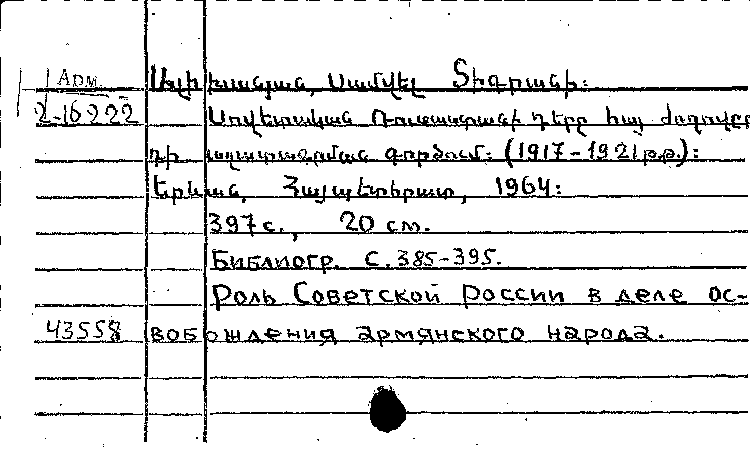 Арм.
2-16222
Ալիխանյան, Սամվել Տիգրանի:
Սովետական Ռուսաստանի դերը հայ ժողովըր
դի ազատագրման գործում: (1917-1921 թ.թ.):
Երևան, Հայպետհրատ, 1964:
397 с., 20 см.
Библиогр. С. 385-395.
Роль Советской России в деле ос-
43558 вобождения армянского народа.